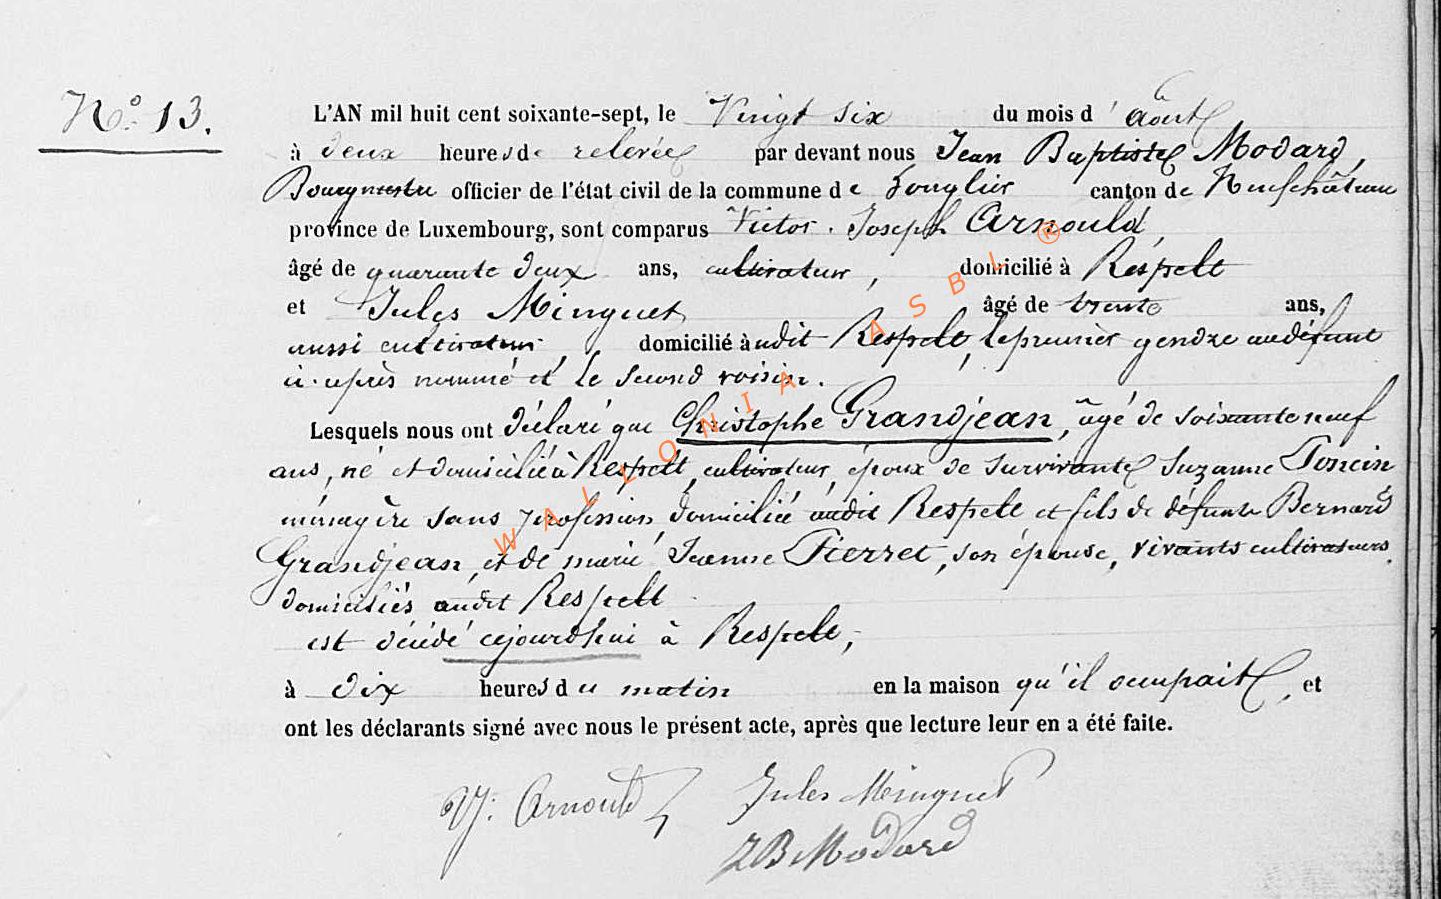 N° 13.
L'AN mil huit cent soixante-sept, le Vingt six du mois d'août
à deux heures de relevée par devant nous Jean Baptiste Modard,
Bourgmestre officier de l'état civil de la commune de Longlier canton de Neufchâteau
province de Luxembourg, sont comparus Victor Joseph Arnould,
âgé de quarante deux ans, cultivateur, domicilié à Respelt
et Jules Minguet âgé de trente ans,
aussi cultivateur, domicilié àudit Respelt, le premier gendre au défunt
ci-après nommé et le second voisin.
Lesquels nous ont déclaré que Christophe Grandjean, âgé de soixante neuf
ans, né et domicilié à Respelt, cultivateur, époux de survivante Suzanne Poncin
ménagère sans profession, domiciliée audit Respelt et fils de défunts Bernard
Grandjean, et de marie Jeanne Pierret, son épouse, vivants cultivateurs,
domiciliés audit Respelt
est décédé cejourd'hui à Respelt,
à dix heures du matin en la maison qu'il occupait, et
ont les déclarants signé avec nous le présent acte, après que lecture leur en a été faite.
VJ. Arnould Jules Minguet
JB Modard
WALLONIA ASBL ®